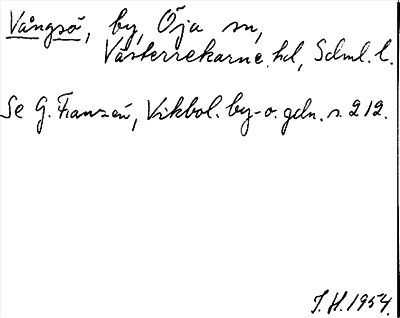 Vångsö, by, Öja sn,
Västerrekarne hd, Sdml. l.
Se G. Franzén, Vikbol. by- o. gdn. s. 212.
I. H. 1954.